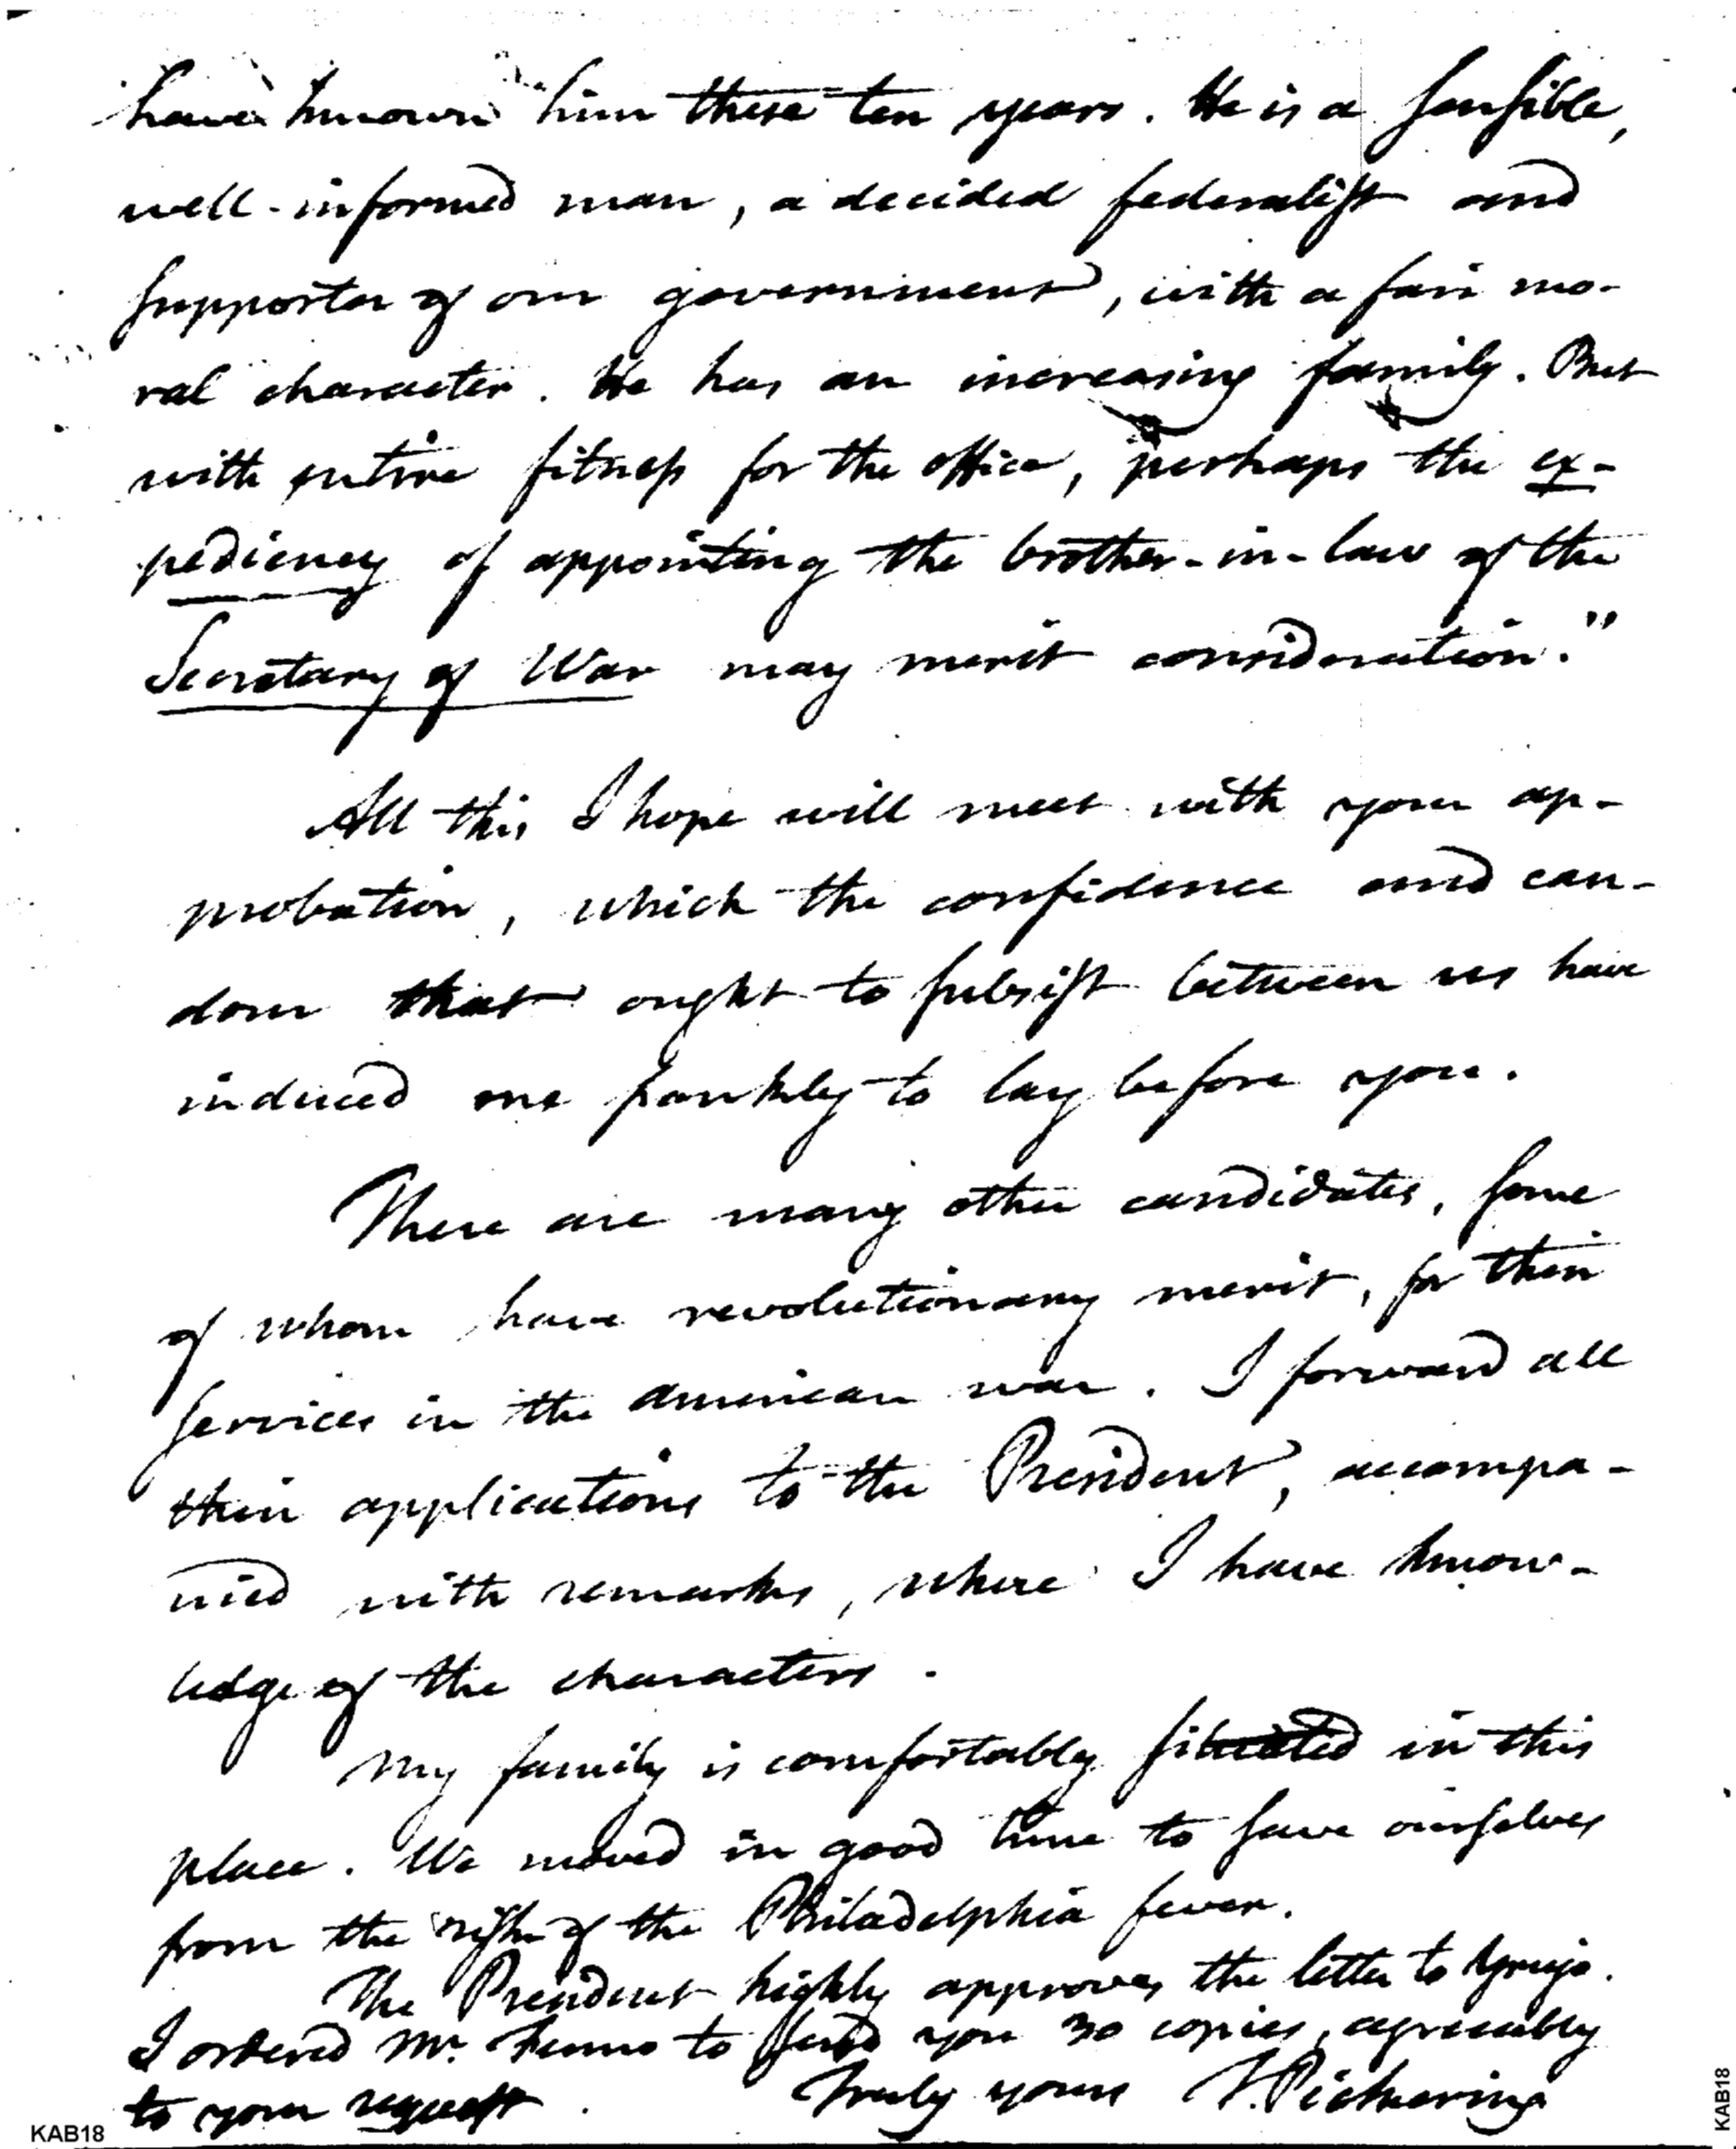 have known him these ten years. He is a sensible,
well-informed man, a decided federalist and
supporter of our government, with a fair mo-
ral character. He has an increasing family. But
with entire fitness for the office, perhaps the ex-
pediency of appointing the brother-in-law of the
Secretary of War may merit consideration."
All this I hope will meet with your ap-
probation, which the confidence and can-
dour that ought to subsist between us have
induced me frankly to lay before you.
There are many other candidates, some
of whom have revolutionary merit, for their
services in the american war. I forward all
their applications to the President, accompa-
nied with remarks, where I have know-
ledge of the characters.
My family is comfortably situated in this
place. We moved in good time to save ourselves
from the risk of the Philadelphia fever.
The President highly approves the letter to Yrujo.
I ordered Mr. Fenno to send you 30 copies, agreeably
to your request. Truly yours T. Pickering
KAB18
KAB18